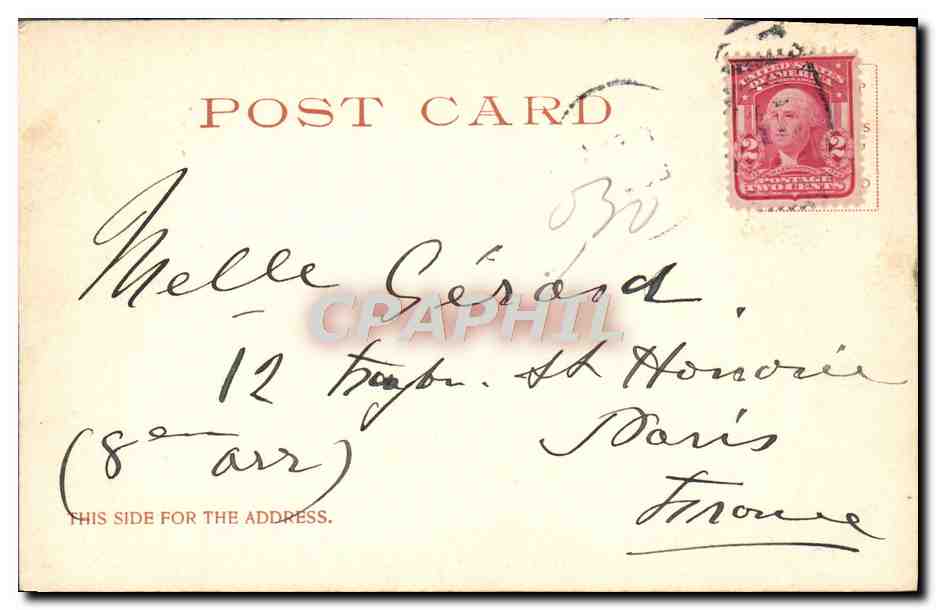 POST CARD
UNITED STATES
OF AMERICA
2 2
POSTAGE
TWO CENTS
Melle Gérard.
CPAPHIL
12 faubr. St Honorée
Paris
(8em arr)
France
THIS SIDE FOR THE ADDRESS.